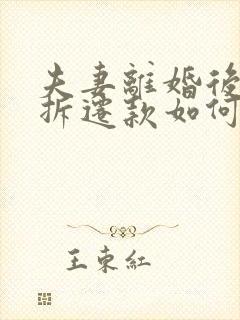 夫妻離婚後
拆遷款如何
王東紅